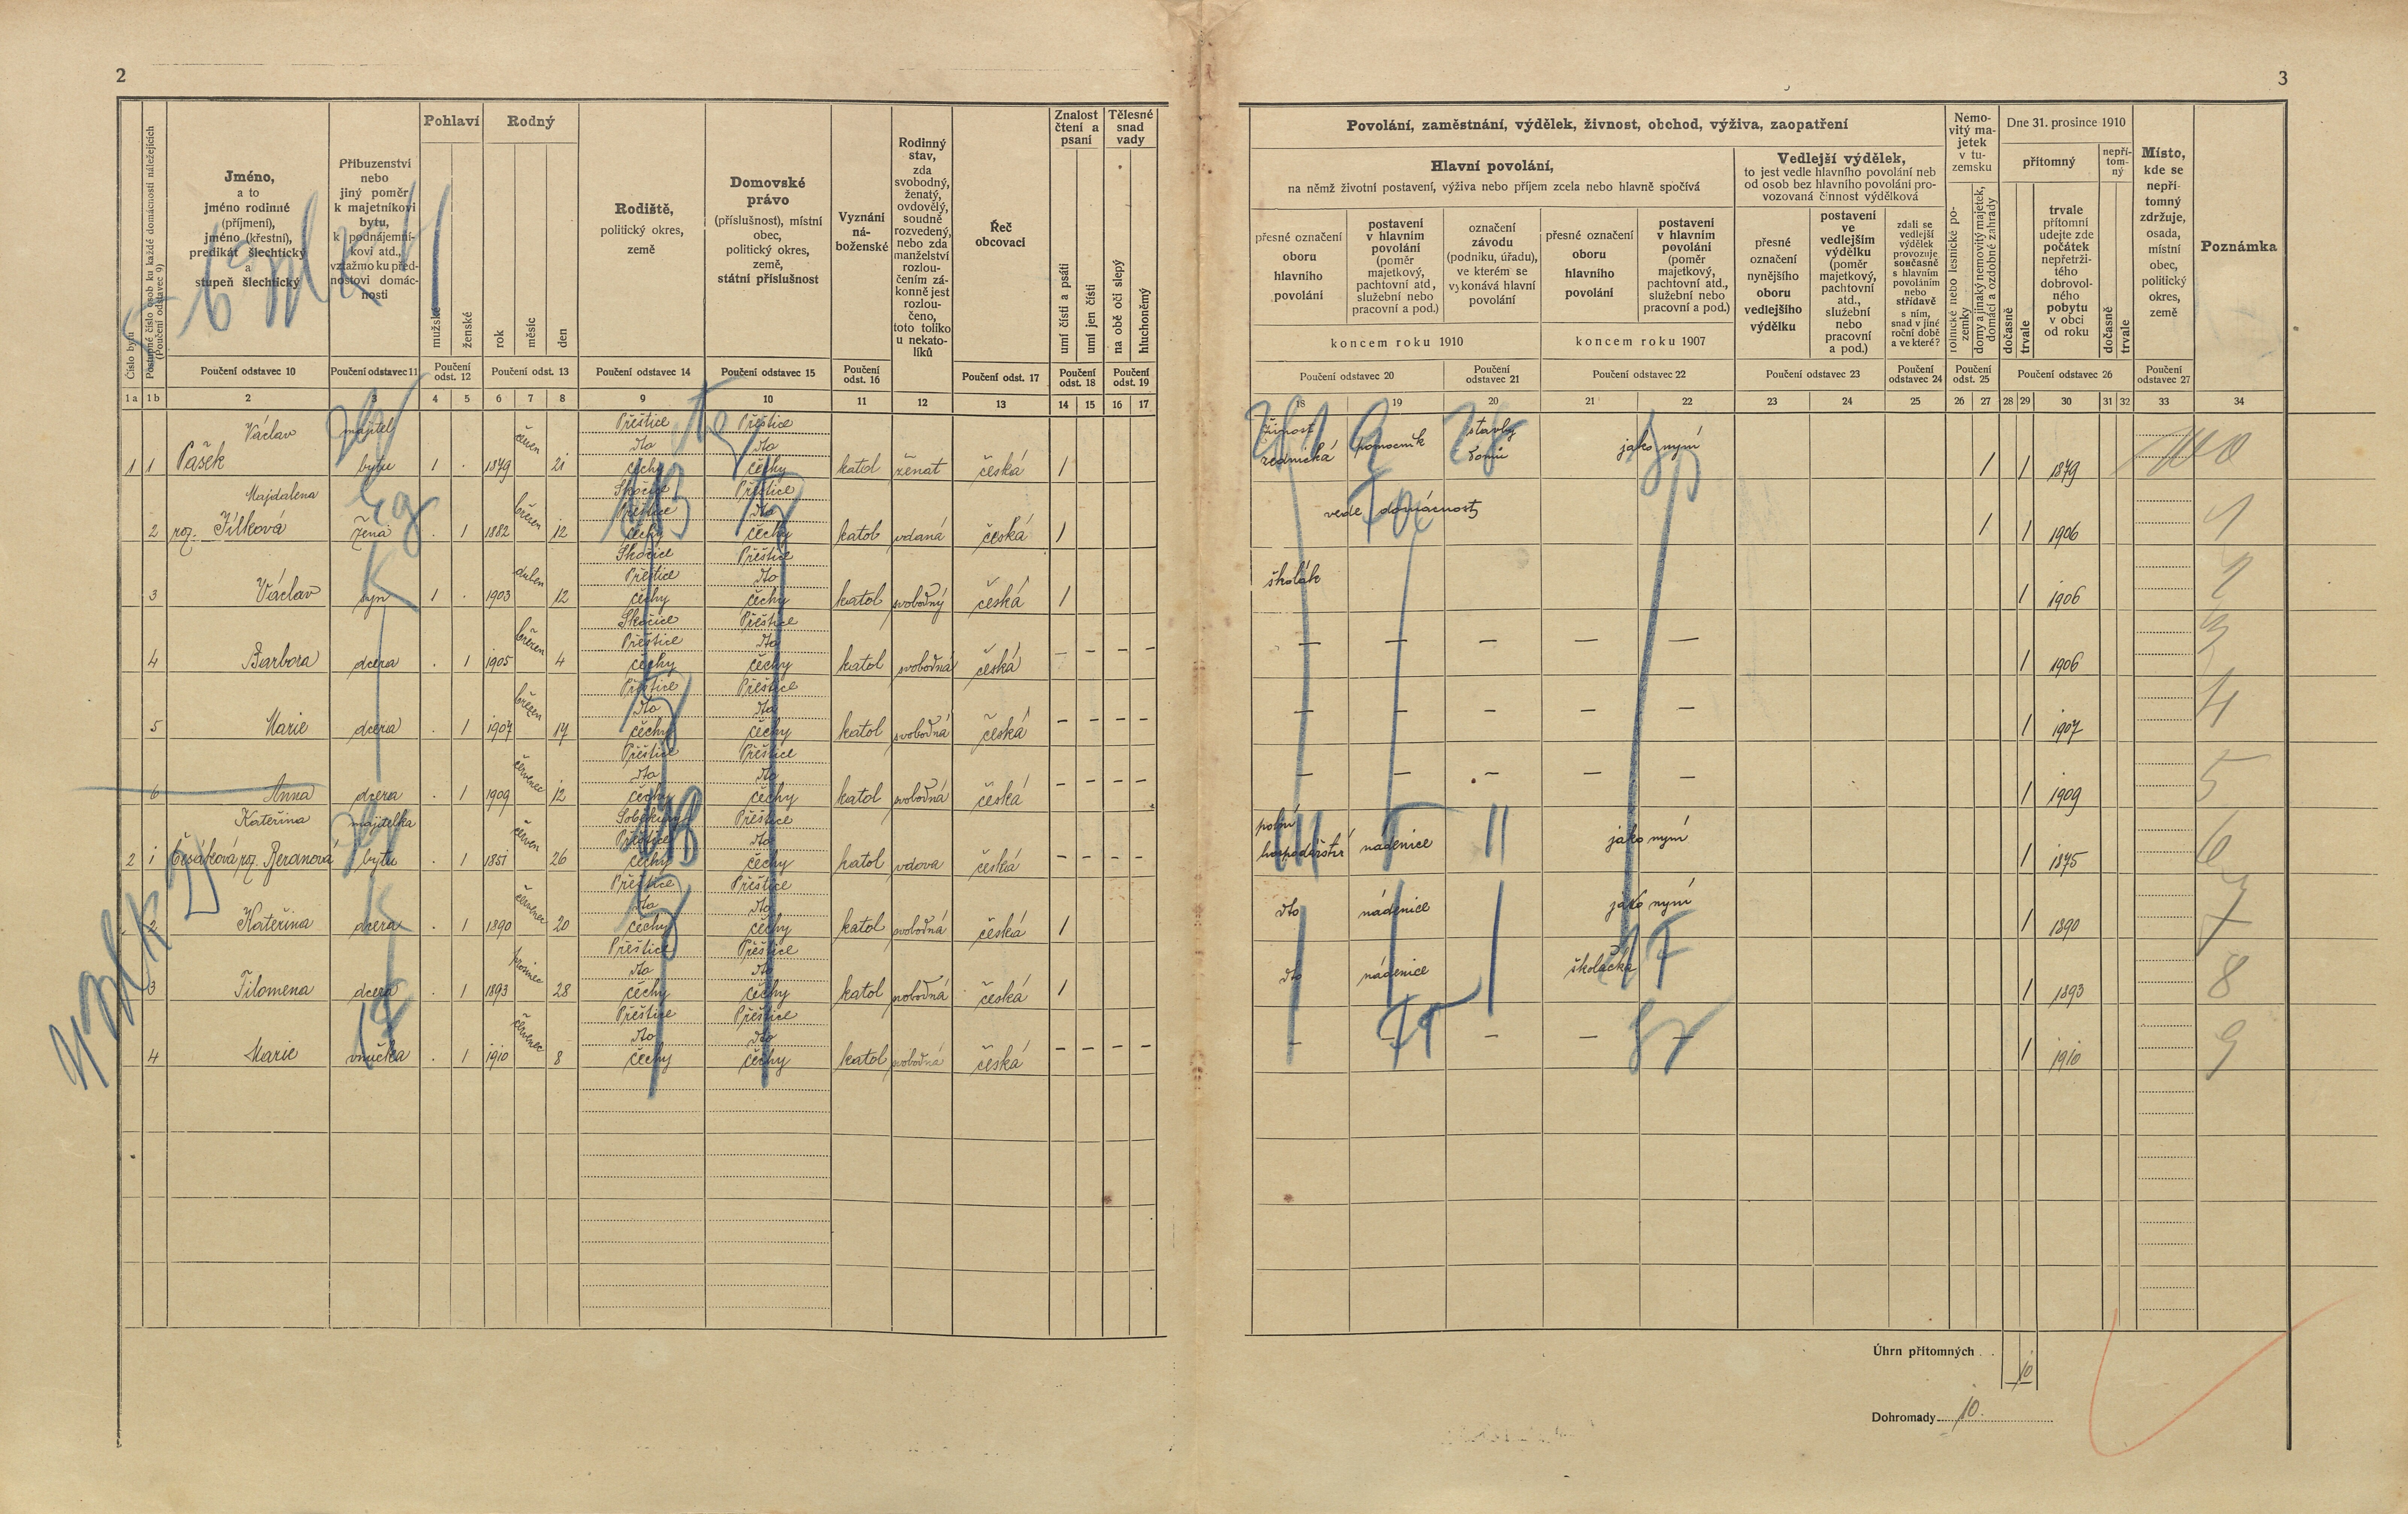 2
3
Pohlaví
Rodný
Znalost čtení a psaní
Tělesné snad vady
Číslo bytu
Postupné číslo osob ku každé domácnosti náležejících
(Poučení odstavec 9)
Jméno,
a to
jméno rodinné
(příjmení),
jméno (křestní),
predikát šlechtický
a
stupeň šlechtický
Příbuzenství
nebo
jiný poměr
k majetníkovi
bytu,
k podnájemní-
kovi atd.,
vztažmo ku před-
nostovi domác-
nosti
mužské
ženské
rok
měsíc
den
Rodiště,
politický okres,
země
Domovské
právo
(příslušnost), místní
obec,
politický okres,
země,
státní příslušnost
Vyznání
ná-
boženské
Rodinný
stav,
zda
svobodný,
ženatý,
ovdovělý,
soudně
rozvedený,
nebo zda
manželství
rozlou-
čením zá-
konně jest
rozlou-
čeno,
toto toliko
u nekato-
líků
Řeč
obcovací
umí čísti a psáti
umí jen čísti
na obě oči slepý
hluchoněmý
Poučení odstavec 10
Poučení odstavec 11
Poučení odst. 12
Poučení odst. 13
Poučení odstavec 14
Poučení odstavec 15
Poučení odst. 16
Poučení odst. 17
Poučení odst. 18
Poučení odst. 19
1a 1b 2 3 4 5 6 7 8 9 10 11 12 13 14 15 16 17
Povolání, zaměstnání, výdělek, živnost, obchod, výživa, zaopatření
Hlavní povolání,
na němž životní postavení, výživa nebo příjem zcela nebo hlavně spočívá
Vedlejší výdělek,
to jest vedle hlavního povolání neb
od osob bez hlavního povolání pro-
vozovaná činnost výdělková
Nemo-
vitý ma-
jetek
v tu-
zemsku
Dne 31. prosince 1910
přítomný
nepří-
tom-
ný
Místo,
kde se
nepří-
tomný
zdržuje,
osada,
místní
obec,
politický
okres,
země
Poznámka
přesné označení
oboru
hlavního
povolání
postavení
v hlavním
povolání
(poměr
majetkový,
pachtovní atd.,
služební nebo
pracovní a pod.)
označení
závodu
(podniku, úřadu),
ve kterém se
vykonává hlavní
povolání
přesné označení
oboru
hlavního
povolání
postavení
v hlavním
povolání
(poměr
majetkový,
pachtovní atd.,
služební nebo
pracovní a pod.)
přesné
označení
nynějšího
oboru
vedlejšího
výdělku
postavení
ve
vedlejším
výdělku
(poměr
majetkový,
pachtovní
atd.,
služební
nebo
pracovní
a pod.)
zdali se
vedlejší
výdělek
provozuje
současně
s hlavním
povoláním
nebo
střídavě
s ním,
snad v jiné
roční době
a ve které?
rolnické nebo lesnické po-
zemky
domy a jinaký nemovitý majetek,
domácí a ozdobné zahrady
dočasně
trvale
trvale
přítomní
udejte zde
počátek
nepřetrži-
tého
dobrovol-
ného
pobytu
v obci
od roku
dočasně
trvale
koncem roku 1910
koncem roku 1907
Poučení odstavec 20
Poučení odstavec 21
Poučení odstavec 22
Poučení odstavec 23
Poučení odstavec 24
Poučení odst. 25
Poučení odstavec 26
Poučení odstavec 27
18 19 20 21 22 23 24 25 26 27 28 29 30 31 32 33 34
Václav majitel červen Přeštice Přeštice
Pašek dto dto
1 1 bytu 1 . 1879 21 čechy čechy katol ženat česká 1
živnost zednická pomocník stavby domů jako nyní 1 1 1879
Majdalena březen Skočice Přeštice
Přeštice dto
2 roz. Jílková žena . 1 1882 12 čechy čechy katol vdaná česká 1
vede domácnost 1 1 1906 1
duben Skočice Přeštice
Přeštice dto
3 Václav syn 1 . 1903 12 čechy čechy katol svobodný česká 1
školák 1 1906 2
březen Skočice Přeštice
Přeštice dto
4 Barbora dcera . 1 1905 4 čechy čechy katol svobodná česká – – – –
– – – – – 1 1906 3
březen Přeštice Přeštice
dto dto
5 Marie dcera . 1 1907 17 čechy čechy katol svobodná česká – – – –
– – – – – 1 1907 4
červenec Přeštice Přeštice
dto dto
6 Anna dcera . 1 1909 12 čechy čechy katol svobodná česká – – – –
– – – – – 1 1909 5
Kateřina majitelka červen Přeštice
Přeštice dto
2 1 roz. Beranová bytu . 1 1851 26 čechy čechy katol vdova česká – – – –
polní hospodářství nádenice jako nyní 1 1875 6
červenec Přeštice Přeštice
dto dto
2 Kateřina dcera . 1 1890 20 čechy čechy katol svobodná česká 1
dto nádenice jako nyní 1 1890 7
prosinec Přeštice Přeštice
dto dto
3 Filomena dcera . 1 1893 28 čechy čechy katol svobodná česká 1
dto nádenice školačka 1 1893 8
červenec Přeštice Přeštice
dto dto
4 Marie vnučka . 1 1910 8 čechy čechy katol svobodná česká – – – –
– – – – 1 1910 9
Úhrn přítomných 10
Dohromady 10.